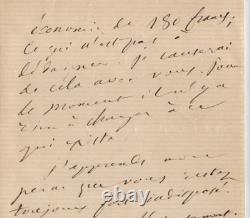 économie de 180 francs,
ce qui n'est pas à
dédaigner. Je causerai
de cela avec vous. Pour
le moment il n'y a
rien à changer à ce
qui existe
J'apprends avec
peine que vous êtes
toujours fort indisposé